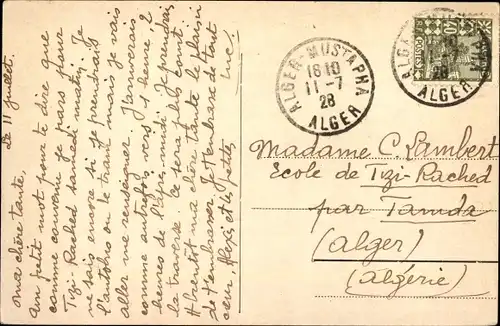 Le 11 juillet.
Ma chère tante,
un petit mot pour te dire que
comme convenu je pars pour
Tizi-Rached samedi matin. Je
ne sais encore si je prendrais
l'autobus ou le train mais je vais
aller me renseigner. J'arriverais
comme autrefois vers 1 heure, 2
heures de l'après midi. Je prendrai
la traverse. Ce sera plus court
A bientôt ma chère tante le plaisir
de t'embrasser. Je t'embrasse de tout
cœur, et la petite.
Luc.
ALGER-MUSTAPHA
18 10
11-7
28
ALGER
28
ALGER
Madame C. Lambert
Ecole de Tizi-Rached
par Tamda
(Alger)
(Algérie)